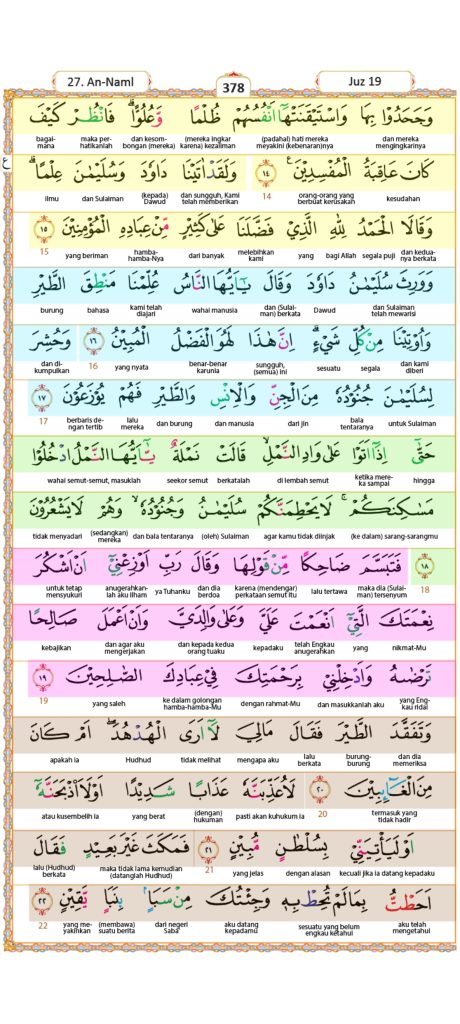 27. An-Naml
378
Juz 19
وَجَحَدُوْا بِهَا وَاسْتَيْقَنَتْهَآ اَنْفُسُهُمْ ظُلْمًا وَّعُلُوًّاۗ فَانْظُرْ كَيْفَ
dan mereka mengingkarinya (padahal) hati mereka meyakini (kebenaran)nya (mereka ingkar karena) kezaliman dan kesom-bongan (mereka) maka per-hatikanlah bagai-mana
ع
كَانَ عَاقِبَةُ الْمُفْسِدِيْنَ ࣖ ١٤ وَلَقَدْ اٰتَيْنَا دَاوٗدَ وَسُلَيْمٰنَ عِلْمًاۗ
kesudahan orang-orang yang berbuat kerusakan 14 dan sungguh, Kami telah memberikan (kepada) Dawud dan Sulaiman ilmu
وَقَالَا الْحَمْدُ لِلّٰهِ الَّذِيْ فَضَّلَنَا عَلٰى كَثِيْرٍ مِّنْ عِبَادِهِ الْمُؤْمِنِيْنَ ١٥
dan kedua-nya berkata segala puji bagi Allah yang melebihkan kami dari banyak hamba-hamba-Nya yang beriman 15
وَوَرِثَ سُلَيْمٰنُ دَاوٗدَ وَقَالَ يٰٓاَيُّهَا النَّاسُ عُلِّمْنَا مَنْطِقَ الطَّيْرِ
dan Sulaiman telah mewarisi Dawud dan (Sulai-man) berkata wahai manusia kami telah diajari bahasa burung
وَاُوْتِيْنَا مِنْ كُلِّ شَيْءٍۗ اِنَّ هٰذَا لَهُوَ الْفَضْلُ الْمُبِيْنُ ١٦ وَحُشِرَ
dan kami diberi segala sesuatu sungguh, (semua) ini benar-benar karunia yang nyata 16 dan di-kumpulkan
لِسُلَيْمٰنَ جُنُوْدُهٗ مِنَ الْجِنِّ وَالْاِنْسِ وَالطَّيْرِ فَهُمْ يُوْزَعُوْنَ ١٧
untuk Sulaiman bala tentaranya dari jin dan manusia dan burung lalu mereka berbaris de-ngan tertib 17
حَتّٰىٓ اِذَآ اَتَوْا عَلٰى وَادِ النَّمْلِۙ قَالَتْ نَمْلَةٌ يّٰٓاَيُّهَا النَّمْلُ ادْخُلُوْا
hingga ketika mere-ka sampai di lembah semut berkatalah seekor semut wahai semut-semut, masuklah
مَسٰكِنَكُمْۚ لَا يَحْطِمَنَّكُمْ سُلَيْمٰنُ وَجُنُوْدُهٗۙ وَهُمْ لَا يَشْعُرُوْنَ
(ke dalam) sarang-sarangmu agar kamu tidak diinjak (oleh) Sulaiman dan bala tentaranya (sedangkan) mereka tidak menyadari
١٨ فَتَبَسَّمَ ضَاحِكًا مِّنْ قَوْلِهَا وَقَالَ رَبِّ اَوْزِعْنِيْٓ اَنْ اَشْكُرَ
18 maka dia (Sulai-man) tersenyum lalu tertawa karena (mendengar) perkataan semut itu dan dia berdoa ya Tuhanku anugerahkan-lah aku ilham untuk tetap mensyukuri
نِعْمَتَكَ الَّتِيْٓ اَنْعَمْتَ عَلَيَّ وَعَلٰى وَالِدَيَّ وَاَنْ اَعْمَلَ صَالِحًا
nikmat-Mu yang telah Engkau anugerahkan kepadaku dan kepada kedua orang tuaku dan agar aku mengerjakan kebajikan
تَرْضٰىهُ وَاَدْخِلْنِيْ بِرَحْمَتِكَ فِيْ عِبَادِكَ الصّٰلِحِيْنَ ١٩
yang Eng-kau ridai dan masukkanlah aku dengan rahmat-Mu ke dalam golongan hamba-hamba-Mu yang saleh 19
وَتَفَقَّدَ الطَّيْرَ فَقَالَ مَا لِيَ لَآ اَرَى الْهُدْهُدَۖ اَمْ كَانَ
dan dia memeriksa burung-burung lalu berkata mengapa aku tidak melihat Hudhud apakah ia
مِنَ الْغَاۤىِٕبِيْنَ ٢٠ لَاُعَذِّبَنَّهٗ عَذَابًا شَدِيْدًا اَوْ لَاَا۟ذْبَحَنَّهٗٓ
termasuk yang tidak hadir 20 pasti akan kuhukum ia (dengan) hukuman yang berat atau kusembelih ia
اَوْ لَيَأْتِيَنِّيْ بِسُلْطٰنٍ مُّبِيْنٍ ٢١ فَمَكَثَ غَيْرَ بَعِيْدٍ فَقَالَ
kecuali jika ia datang kepadaku dengan alasan yang jelas 21 maka tidak lama kemudian (datanglah Hudhud) lalu (Hudhud) berkata
اَحَطْتُّ بِمَا لَمْ تُحِطْ بِهٖ وَجِئْتُكَ مِنْ سَبَاٍ ۢ بِنَبَاٍ يَّقِيْنٍ ٢٢
aku telah mengetahui sesuatu yang belum engkau ketahui aku datang kepadamu dari negeri Saba' (membawa) suatu berita yang me-yakinkan 22